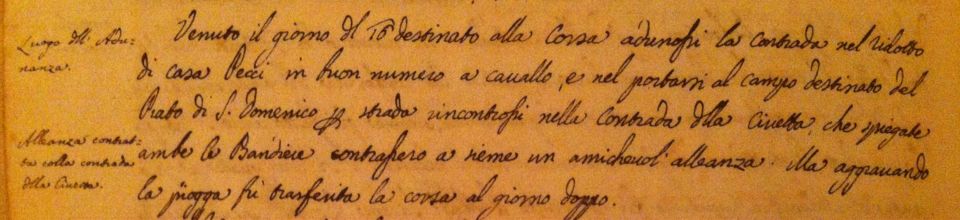 Luogo dll' Adu-
nanza.
Venuto il giorno dl 16 destinato alla Corsa adunossi la Contrada nel ridotto
di casa Pecci in buon numero a cavallo, e nel portarsi al campo destinato del
Prato di S. Domenico p strada rincontrossi nella Contrada dlla Civetta, che spiegate
Alleanza contrat-
ta colla contrada
dlla Civetta.
ambe le Bandiere contrassero a sieme un amichevol' alleanza. Ma aggravando
la piogga fù trasferita la corsa al giorno doppo.